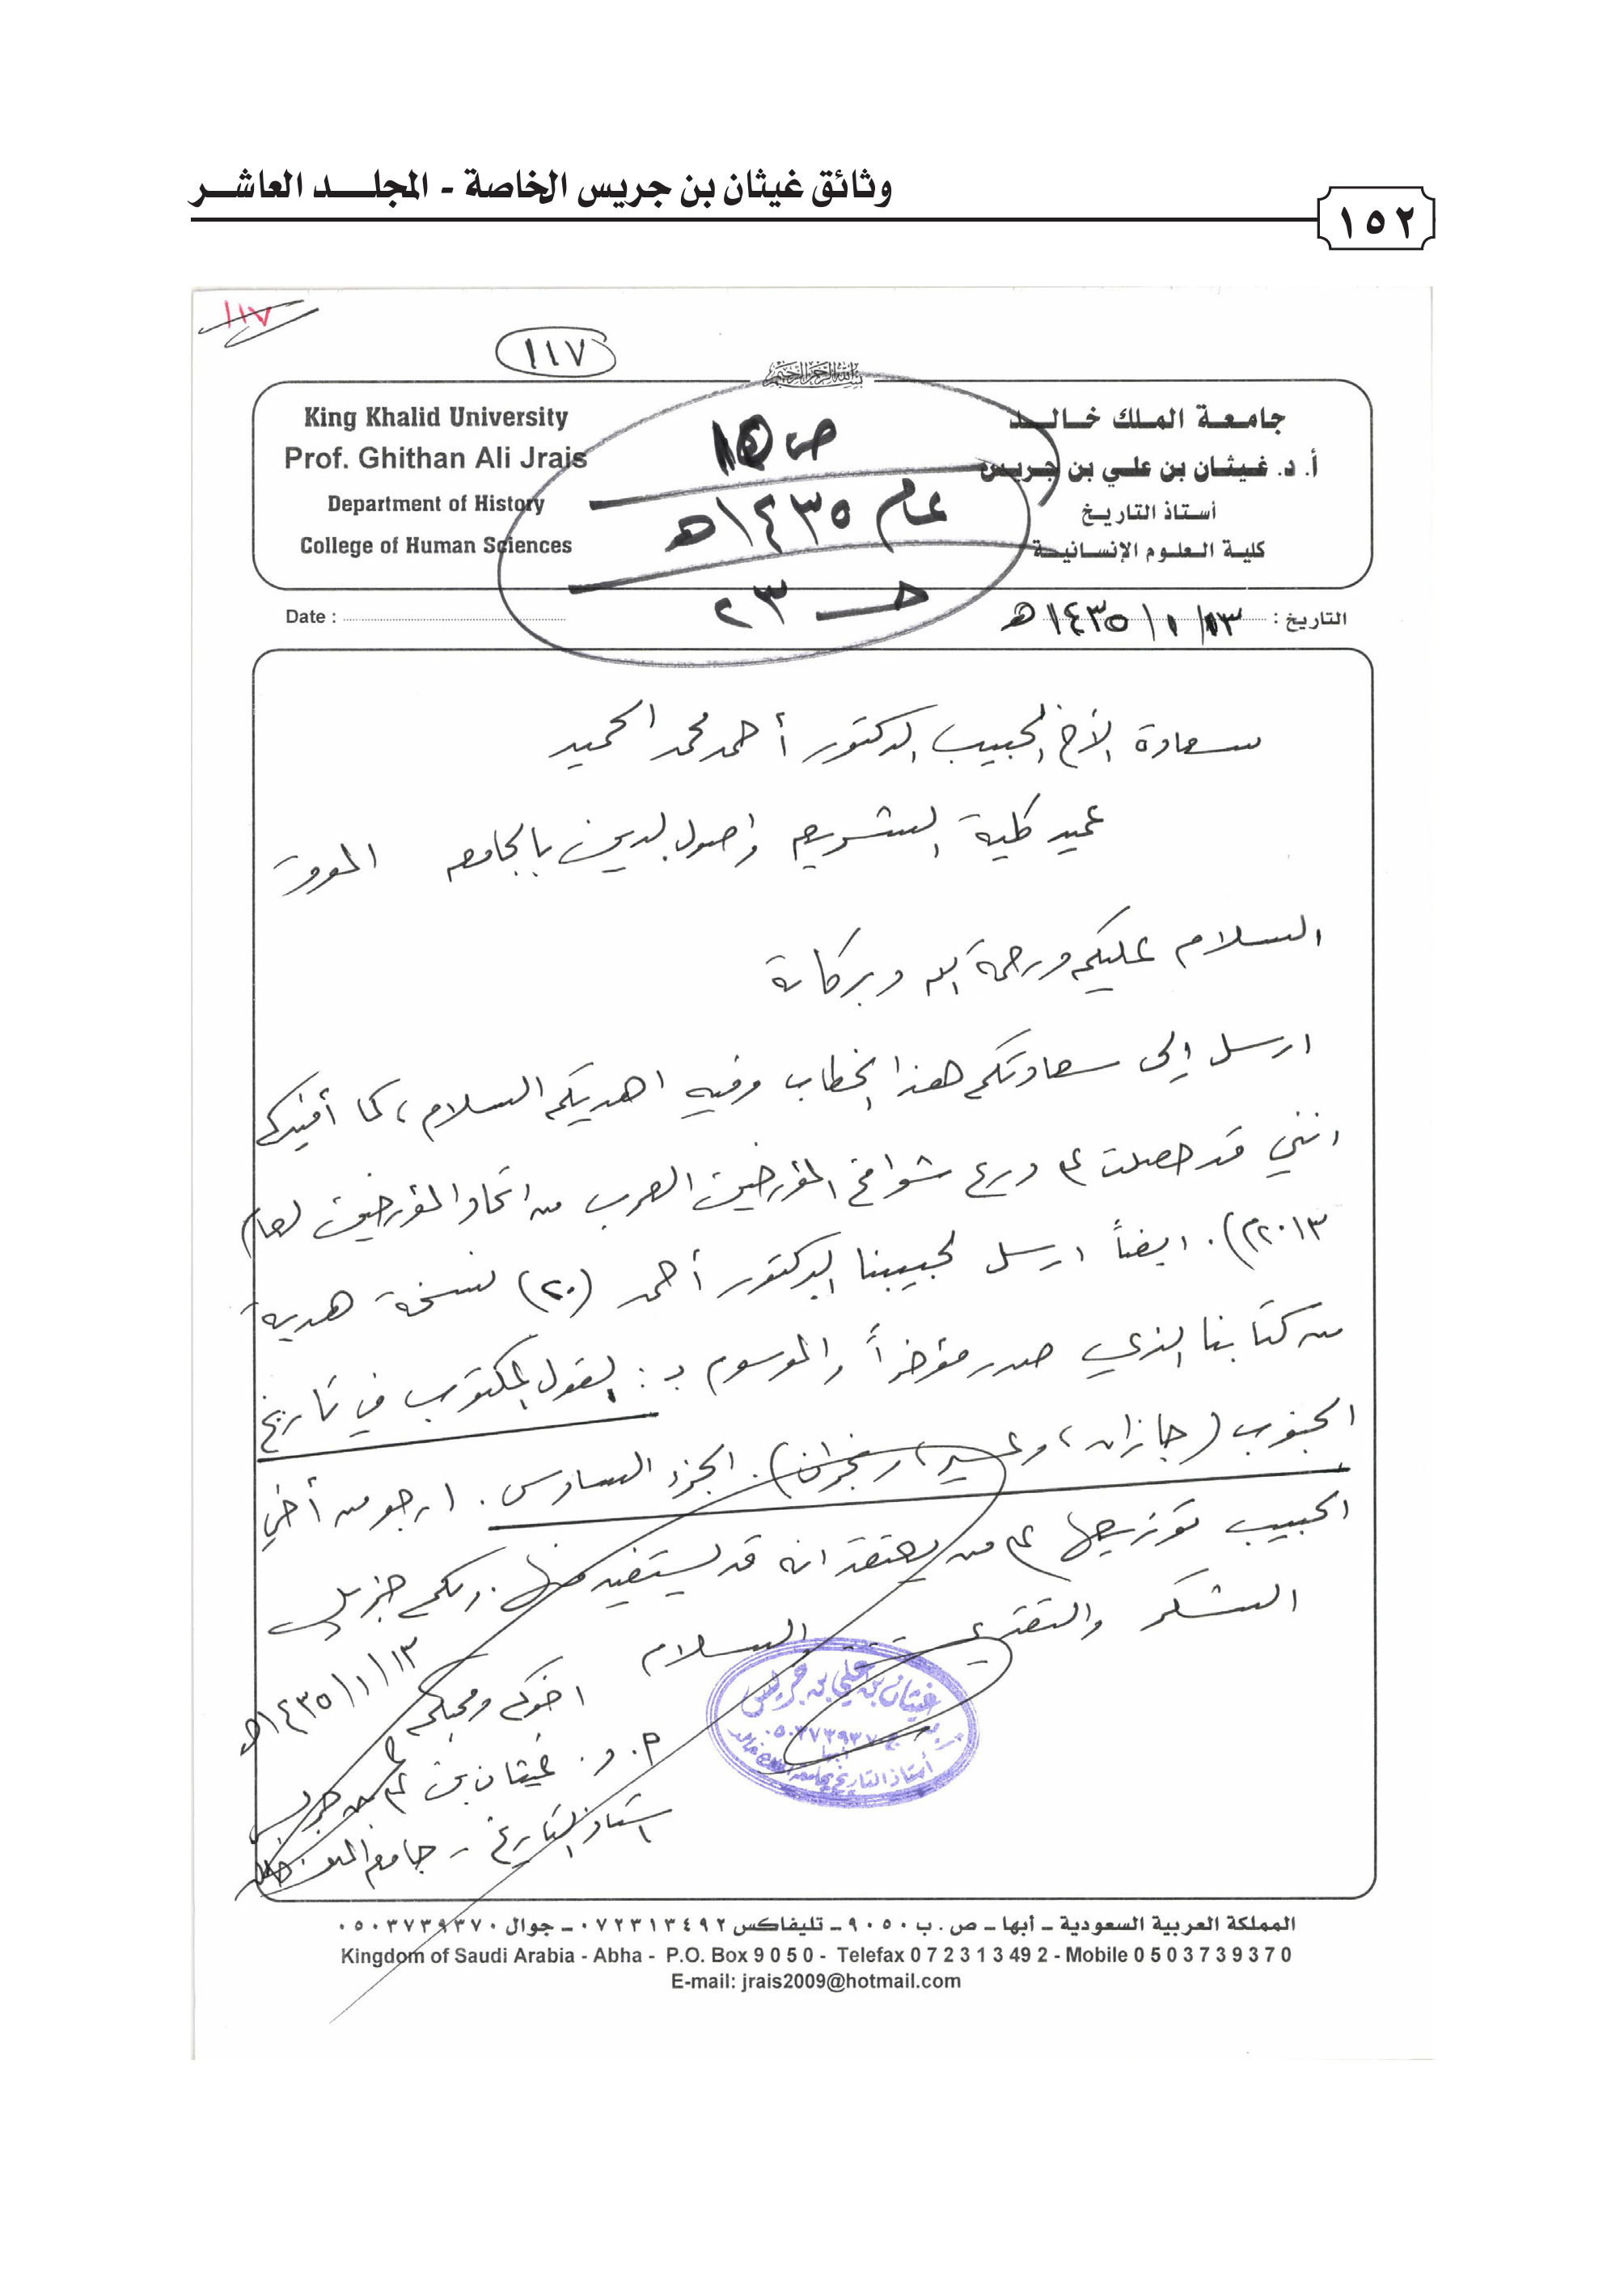 وثائق غيثان بن جريس الخاصة - المجلد العاشر
١٥٢
١١٧
١١٧
بسم الله الرحمن الرحيم
King Khalid University
Prof. Ghithan Ali Jrais
Department of History
College of Human Sciences
جامعة الملك خالد
أ. د. غيثان بن علي بن جريس
أستاذ التاريخ
كلية العلوم الإنسانية
ص
عام ١٤٣٥هـ
حـ ٢٣
Date :
التاريخ : ١٣/ ١/ ١٤٣٥هـ
سعادة الأخ الحبيب الدكتور أحمد محمد الحميد
عميد كلية الشريعة واصول الدين بالجامعة الموقرة
السلام عليكم ورحمة الله وبركاتة
ارسل إلى سعادتكم هذا الخطاب وفيه اهديكم السلام، كما أفيدكم
انني قد حصلت على درع شوامخ المؤرخين العرب من اتحاد المؤرخين لعام
٢٠١٣م). ايضاً ارسل لحبيبنا الدكتور أحمد (٢٠) نسخة هدية
من كتابنا الذي صدر مؤخراً والموسوم بـ: القول المكتوب في تاريخ
الجنوب (جازان، وعسير، ونجران). الجزء السادس. ارجو من أخي
الحبيب توزيعها على من يعتقد انه قد يستفيد منها. ولكم جزيل
الشكر والتقدير والسلام
١٣/١/١٤٣٥هـ
اخوكم ومحبكم
أ. د. غيثان بن علي بن جريس
استاذ التاريخ - جامعة الملك خالد
غيثان بن علي بن جريس
أبها
أستاذ التاريخ بجامعة الملك خالد
المملكة العربية السعودية ــ أبها ــ ص . ب ٩٠٥٠ ــ تليفاكس ٠٧٢٣١٣٤٩٢ ــ جوال ٠٥٠٣٧٣٩٣٧٠
Kingdom of Saudi Arabia - Abha - P.O. Box 9 0 5 0 - Telefax 0 7 2 3 1 3 49 2 - Mobile 0 5 0 3 7 3 9 3 7 0
E-mail: jrais2009@hotmail.com